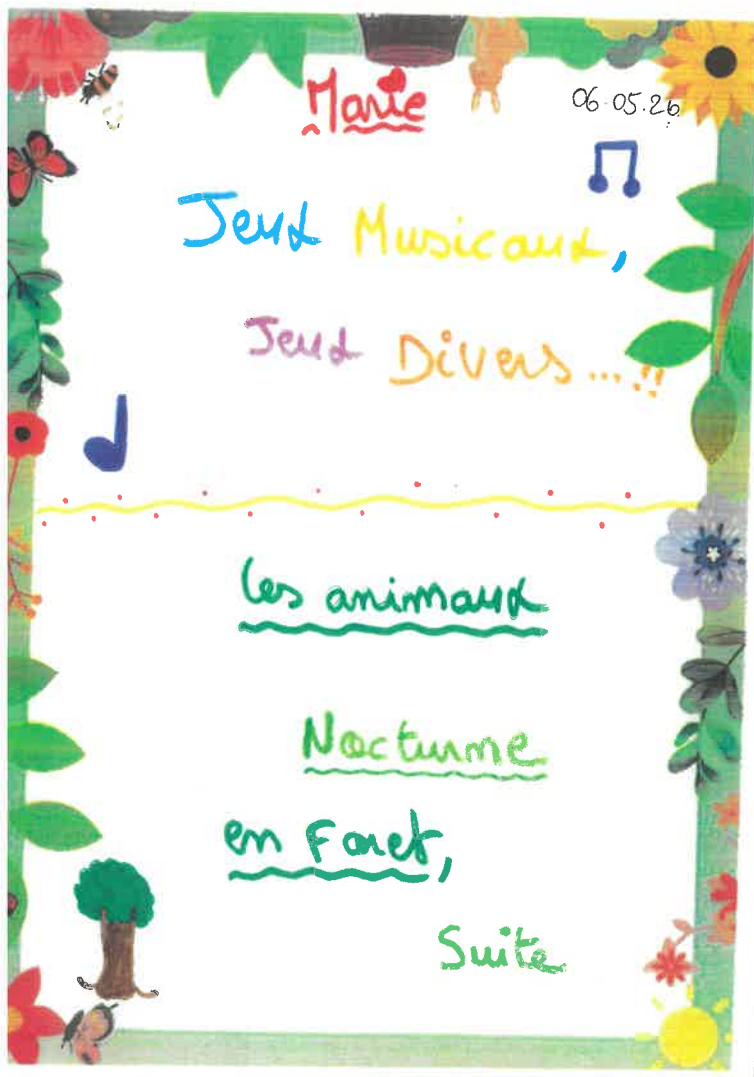 Marie
06.05.26
Jeux Musicaux,
Jeux Divers...!!
les animaux
Nocturne
en Foret,
Suite